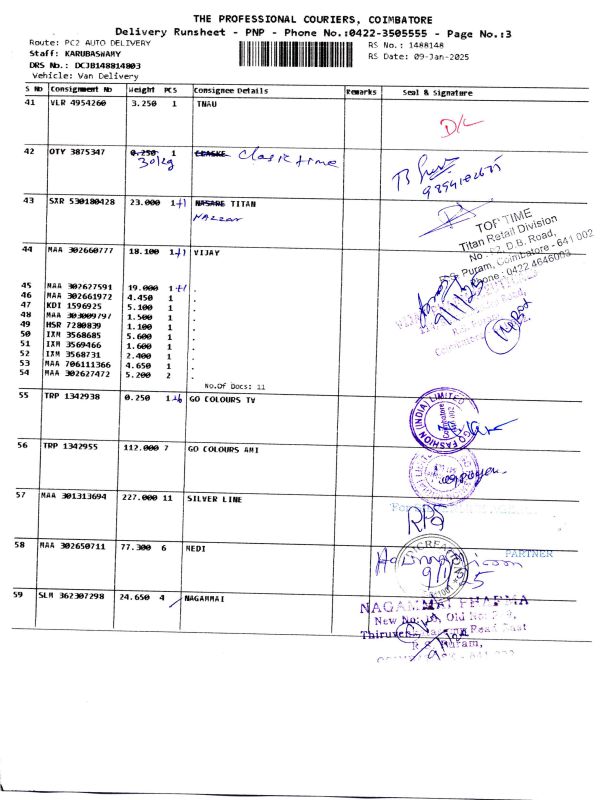 THE PROFESSIONAL COURIERS, COIMBATORE
Delivery Runsheet - PNP - Phone No.:0422-3505555 - Page No.:3
Route: PC2 AUTO DELIVERY
RS No.: 1488148
Staff: KARUBASWAMY
RS Date: 09-Jan-2025
DRS No.: DCJB148814803
Vehicle: Van Delivery
S No Consignment No Weight PCS Consignee Details Remarks Seal & Signature
41 VLR 4954260 3.250 1 TNAU
D/L
42 OTY 3875347 0.250 1 CDASKE Clasic time
30kg
43 SXR 530180428 23.000 1+1 NASARE TITAN
Nazzar
TOP TIME
Titan Retail Division
D.B. Road,
Puram, Coimbatore - 641 002
Phone: 0422 4646003
44 MAA 302660777 18.100 1+1 VIJAY
45 MAA 302627591 19.000 1+1 .
46 MAA 302661972 4.450 1 .
47 KDI 1596925 5.100 1 .
48 MAA 303009797 1.500 1 .
49 HSR 7280839 1.100 1 .
50 IXM 3568685 5.600 1 .
51 IXM 3569466 1.600 1 .
52 IXM 3568731 2.400 1 .
53 MAA 706111366 4.650 1 .
54 MAA 302627472 5.200 2 .
No.Of Docs: 11
9/1/25
55 TRP 1342938 0.250 1 GO COLOURS TV
GO FASHION (INDIA) LIMITED
56 TRP 1342955 112.000 7 GO COLOURS AMI
57 MAA 301313694 227.000 11 SILVER LINE
For
PARTNER
58 MAA 302650711 77.300 6 MEDI
59 SLM 362307298 24.650 4 NAGAMMAI
NAGAMMAI PHARMA
New No: Old No:
East
R.S. Puram,